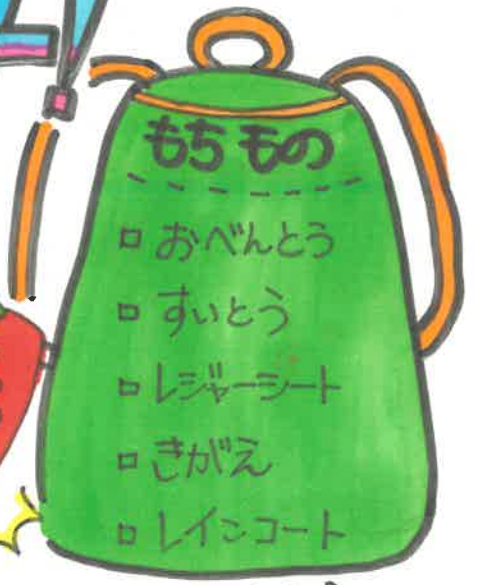 もちもの
□ おべんとう
□ すいとう
□ レジャーシート
□ きがえ
□ レインコート